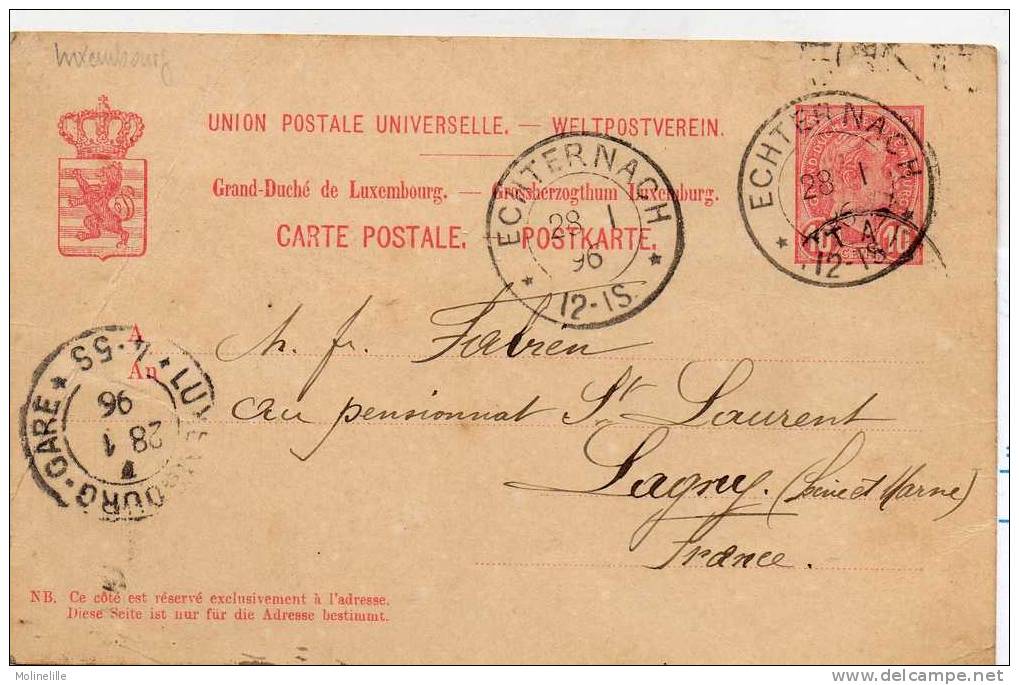 Luxembourg
UNION POSTALE UNIVERSELLE. — WELTPOSTVEREIN.
Grand-Duché de Luxembourg. — Grosherzogthum Luxemburg.
CARTE POSTALE. — POSTKARTE.
ECHTERNACH
28 1
96
12-1S
ECHTERNACH
28 1
12-1S
A
An
LUXEMBOURG-GARE
4-5S
28 1
96
h. fr. Fabien
au pensionnat St Laurent
Lagny. (Seine et Marne)
France.
NB. Ce côté est réservé exclusivement à l'adresse.
Diese Seite ist nur für die Adresse bestimmt.
Molinelille
www.delcampe.net